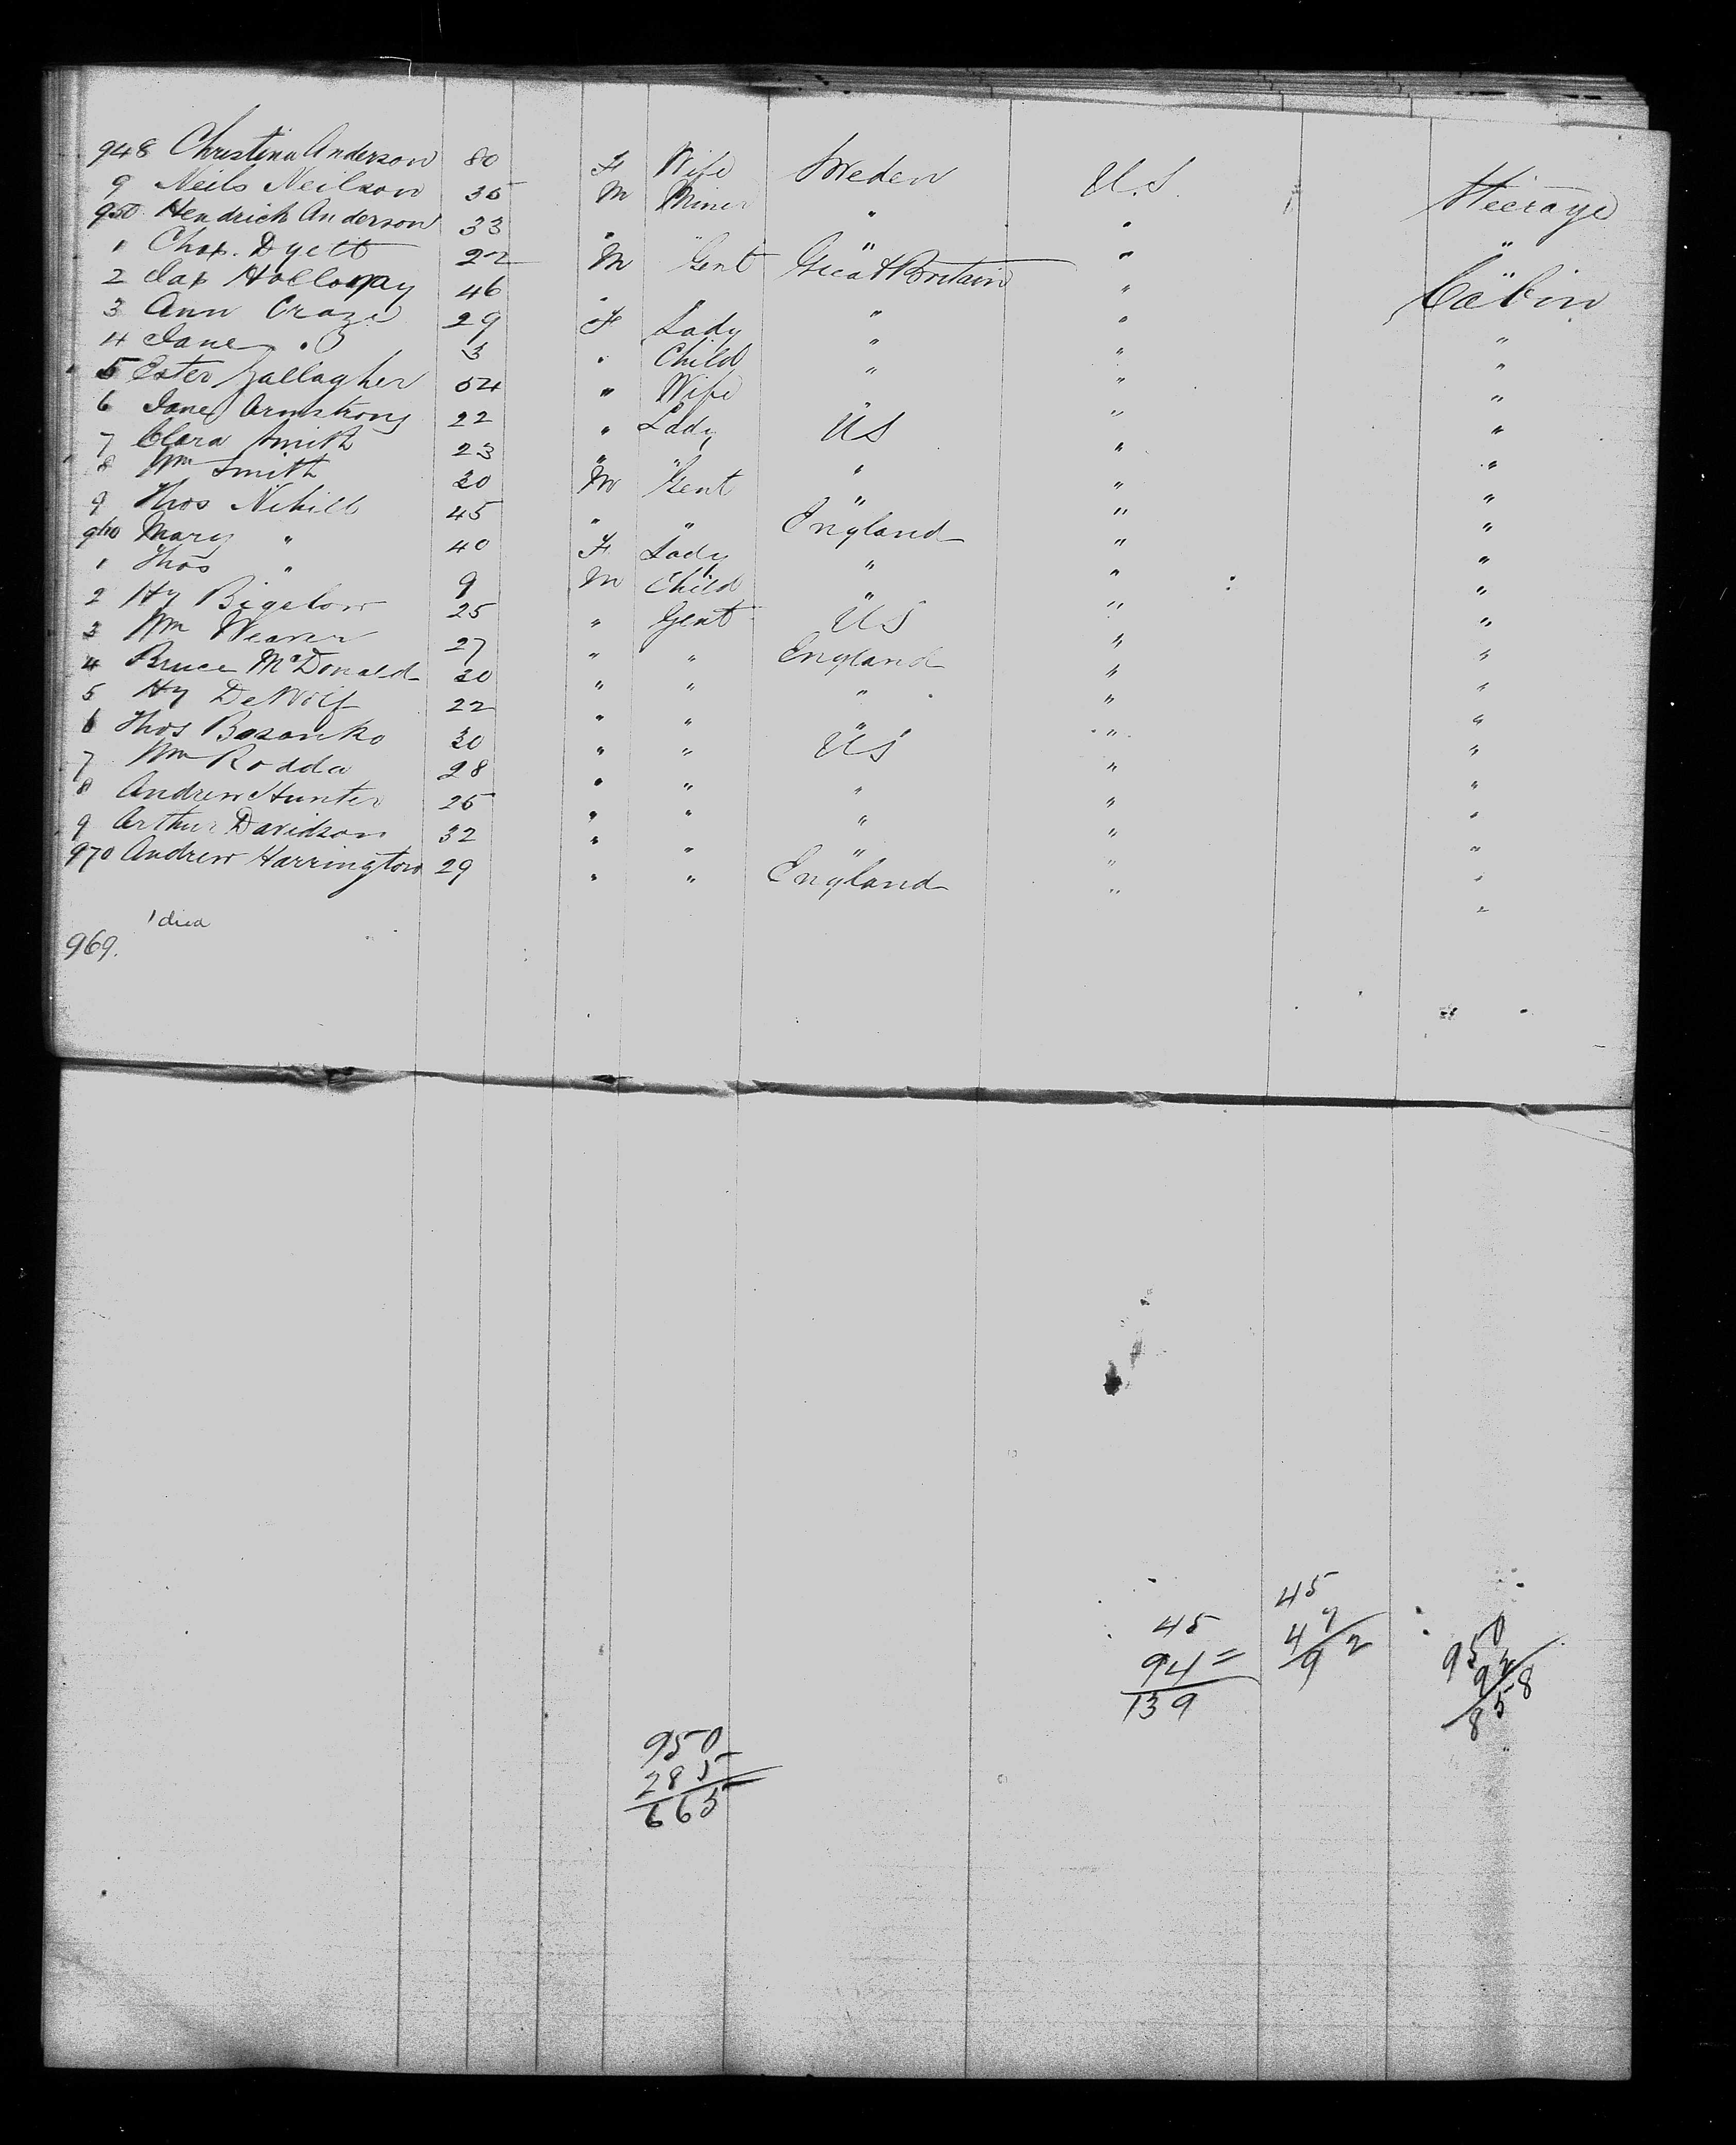 948 Christina Anderson 80 F Wife Sweden U.S. Steerage
9 Neils Neilson 35 M Miner " " "
950 Hendrick Anderson 33 " " " "
1 Chas. Dyett 22 M Gent Great Britain " Cabin
2 Jas Holloway 46 " " " "
3 Ann Craze 29 F Lady " " "
4 Jane " 3 " Child " " "
5 Ester Gallagher 54 " Wife " " "
6 Jane Armstrong 22 " Lady US " "
7 Clara Smith 23 " " " " "
8 Wm Smith 30 M Gent " " "
9 Thos Nihill 45 " " England " "
960 Mary " 40 F Lady " " "
1 Thos " 9 M Child " " "
2 Hy Bigelow 25 " Gent US " "
3 Wm Weaver 27 " " England " "
4 Bruce McDonald 30 " " " " "
5 Hy DeWolf 22 " " " " "
6 Thos Bosanko 30 " " US " "
7 Wm Rodda 28 " " " " "
8 Andrew Hunter 25 " " " " "
9 Arthur Davidson 32 " " " " "
970 Andrew Harrington 29 " " England " "
1 died
969.
45
94 =
139
45
47
92
950
92
858
950
285
665